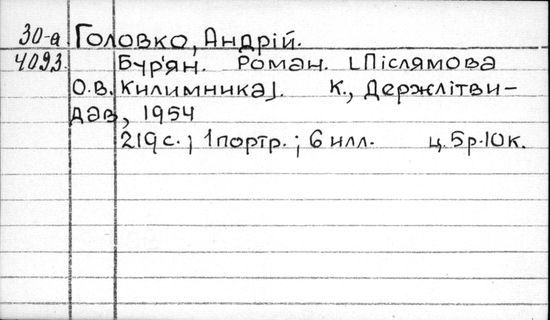 30-а Головко, Андрій.
4093. Бур'ян. Роман. [Післямова
О.В. Килимника]. К., Держлітви-
дав, 1954
219 с.; 1 портр.; 6 илл. ц. 5р.10к.